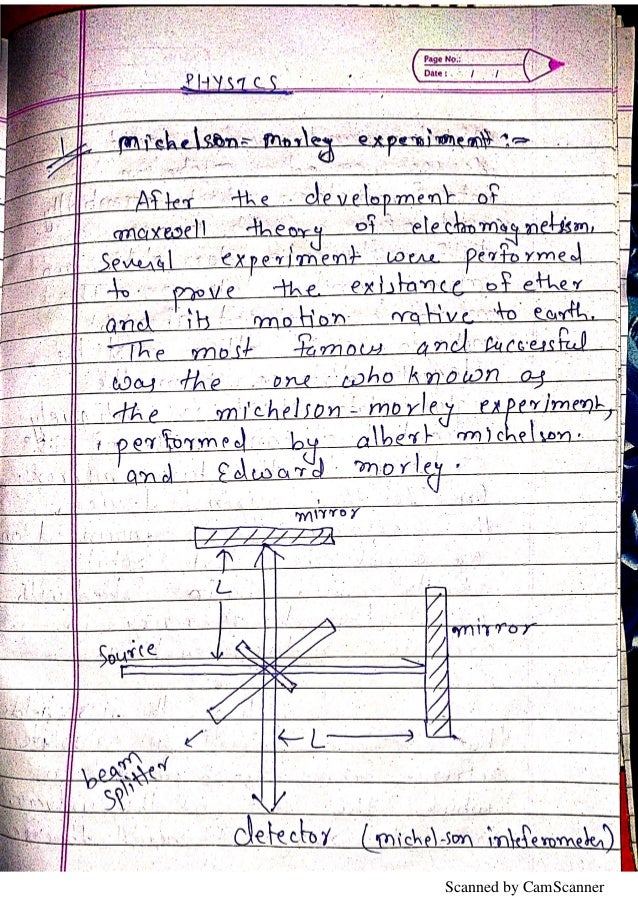 Page No.:
Date : / /
PHYSICS
1
michelson = morley experiment :-
After the development of
maxwell theory of electromagnetism,
Several experiment were performed
to prove the existance of ether
and its motion rative to earth.
The most famous and successful
was the one who known as
the michelson - morley experiment,
performed by albert michelson.
and Edward morley.
mirror
L
mirror
Source
L
beam
splitter
detector (michel-son inteferometer)
Scanned by CamScanner